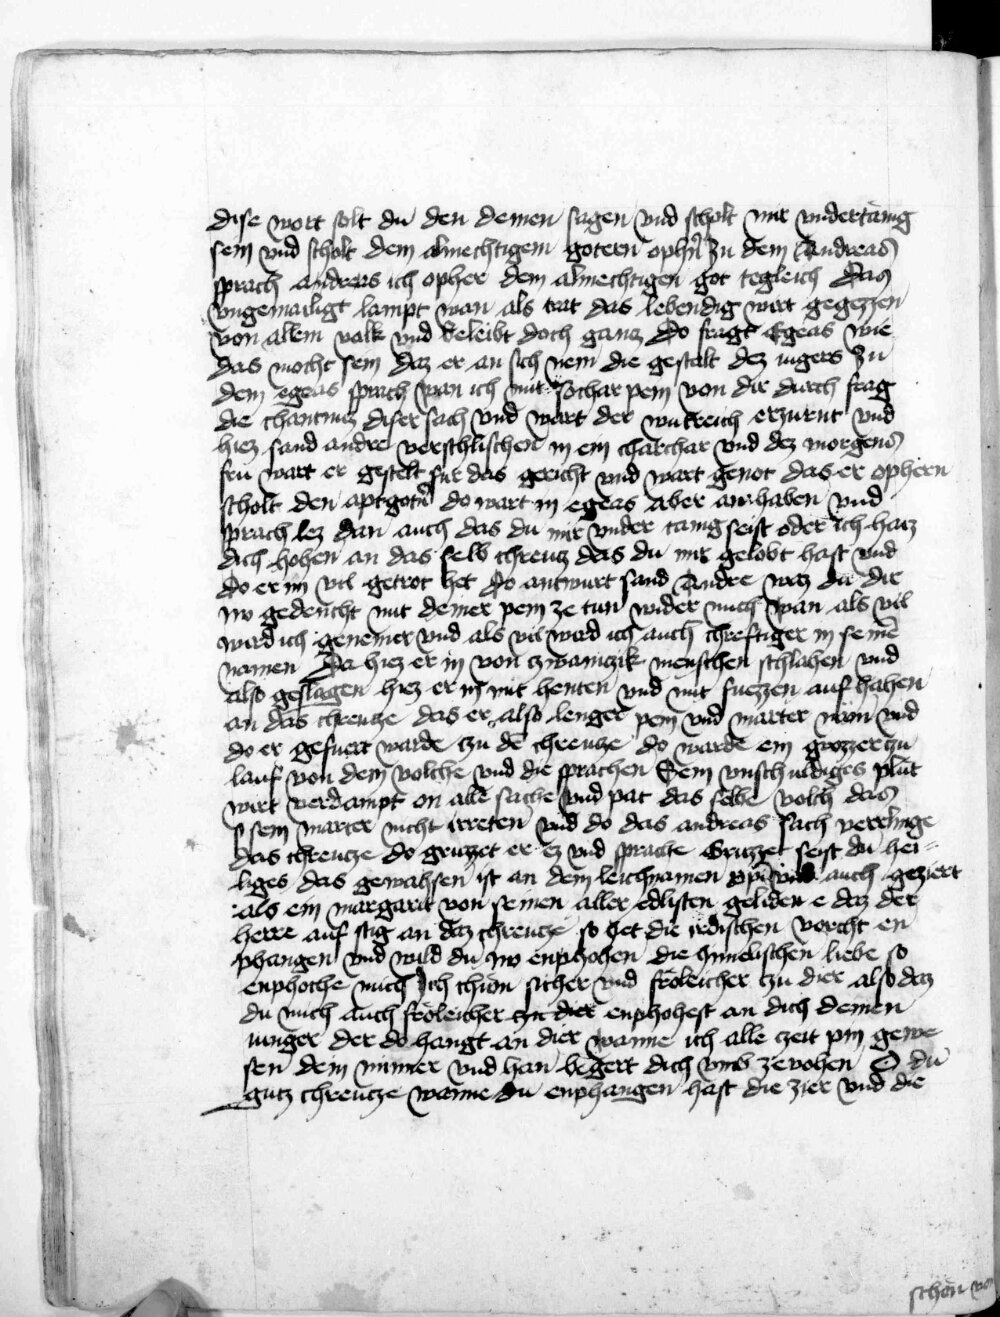 dise wort solt du den deinen sagen vnd scholt mir vndertänig
sein vnd scholt dem almechtigem gotern ophern̄ Zu dem Andreas
sprach andreas ich opher dem almechtigen got tegleich Das
vngemailigt lampt wan als trat das lebendig wirt gegezzen
von allem volk vnd beleibt doch gancz Do fragt Egeas wie
das mocht sein daz er an sich nem die gestalt dez iugers Zu
dem egeas sprach wan ich mit sothar pein von dir durch frag
die chantnuz diser sach vnd wart der wutreich erzurnt vnd
hiez sand andre verschlischen in ein charchar vnd dez morgens
fru wart er gestelt für das gericht vnd wart genot das er ophern
scholt den aptgotn̄ do wart in egeas aber anhaben vnd
sprach lez dan auch das du mir vnder tanig seist oder ich haiz
dich hohen an das selb chreucz das du mir gelobt hast vnd
do er im vil getrot het Do antwurt sand Andre waz du dir
nw gedencht mit deiner pein ze tun wider mich wan als vil
wird ich genemer vnd als vil wird ich auch chreftiger in seinē
namen Da hiez er in von czwainczik menschen schlahen vnd
also geslagen hiez er in mit henten vnd mit fuezzen auf hahen
an das chreucze das er also lenger pein vnd marter näm vnd
do er gefuert warde czu dē chreucze do warde ein grozzer zu
lauf von dem volche vnd die sprachen Sein vnschuldiges plut
wirt verdampt on alle sache vnd pat das selbe volch das
s sein marter nicht irreten vnd do das andreas sach verrlinge
das chreucze do gruzzet er ez vnd sprache Gruzzet seist du hei=
liges das gewahsen ist an dem leichnamen xpī vnd auch geziert
als ein margarit von seinen aller edlisten geliden e daz der
herre auf stig an daz chreucze so het die irdischen vorcht en
phangen vnd wild du nw enphohen die himelischen liebe so
enphoche mich Ich chüm sicher vnd fröleicher czu dier also daz
du mich auch fröleicher czu dier enphohest an dich deinen
iunger der do hangt an dier wanne ich alle czeit pin gewe
sen dein minner vnd han begert dich vmb zevohen O du
gucz chreucze wanne du enphangen hast die zier vnd die
schön